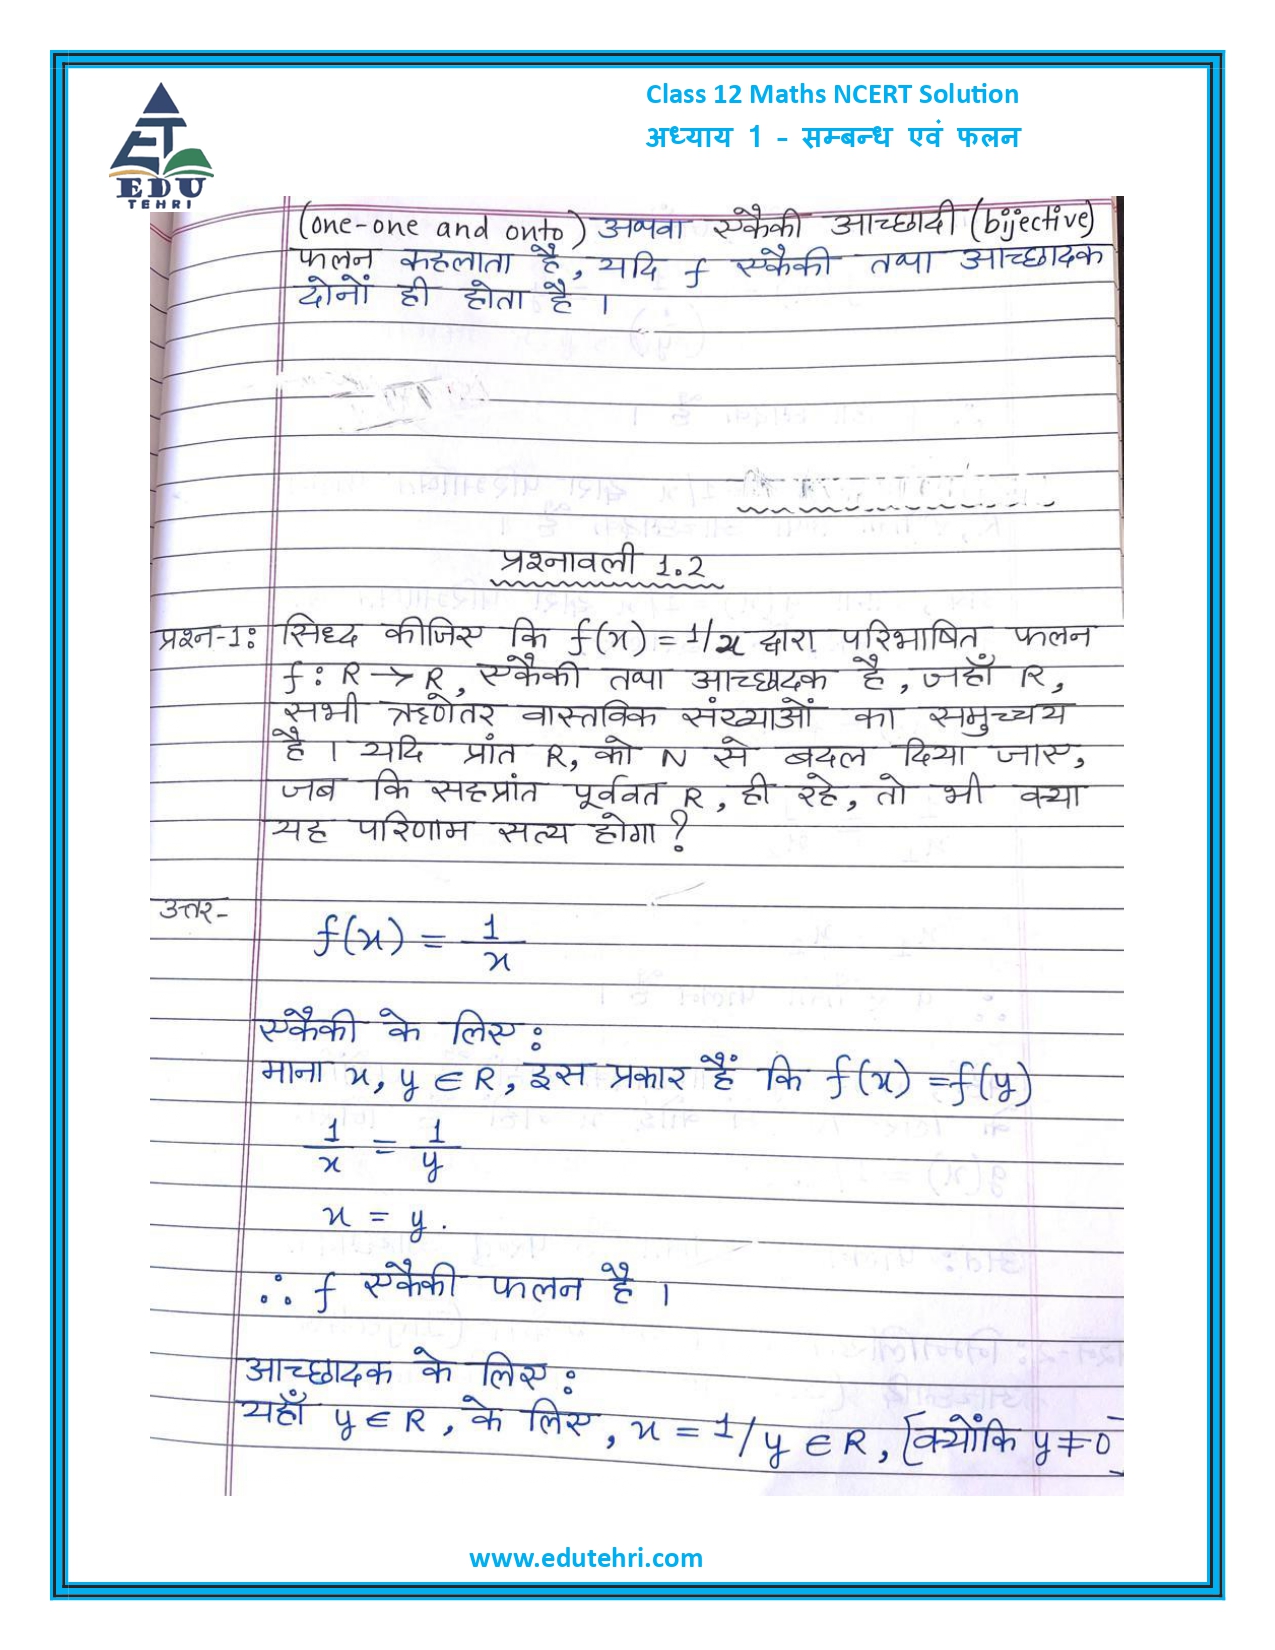 EDU
TEHRI
Class 12 Maths NCERT Solution
अध्याय 1 - सम्बन्ध एवं फलन
(one-one and onto) अथवा एकैकी आच्छादी (bijective)
फलन कहलाता है, यदि f एकैकी तथा आच्छादक
दोनों ही होता है ।
प्रश्नावली 1.2
प्रश्न-1: सिध्द कीजिए कि f(x) = 1/x द्वारा परिभाषित फलन
f : R → R, एकैकी तथा आच्छादक है, जहाँ R,
सभी ऋणेतर वास्तविक संख्याओं का समुच्चय
है । यदि प्रांत R, को N से बदल दिया जाए,
जब कि सहप्रांत पूर्ववत R, ही रहे, तो भी क्या
यह परिणाम सत्य होगा ?
उत्तर-
f(x) = 1/x
एकैकी के लिए :
माना x, y ∈ R, इस प्रकार हैं कि f(x) = f(y)
1/x = 1/y
x = y .
∴ f एकैकी फलन है ।
आच्छादक के लिए :
यहाँ y ∈ R, के लिए, x = 1/y ∈ R, [क्योंकि y ≠ 0]
www.edutehri.com